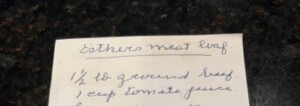 Esthers meat loaf
1½ lb ground beef
1 cup tomato juice